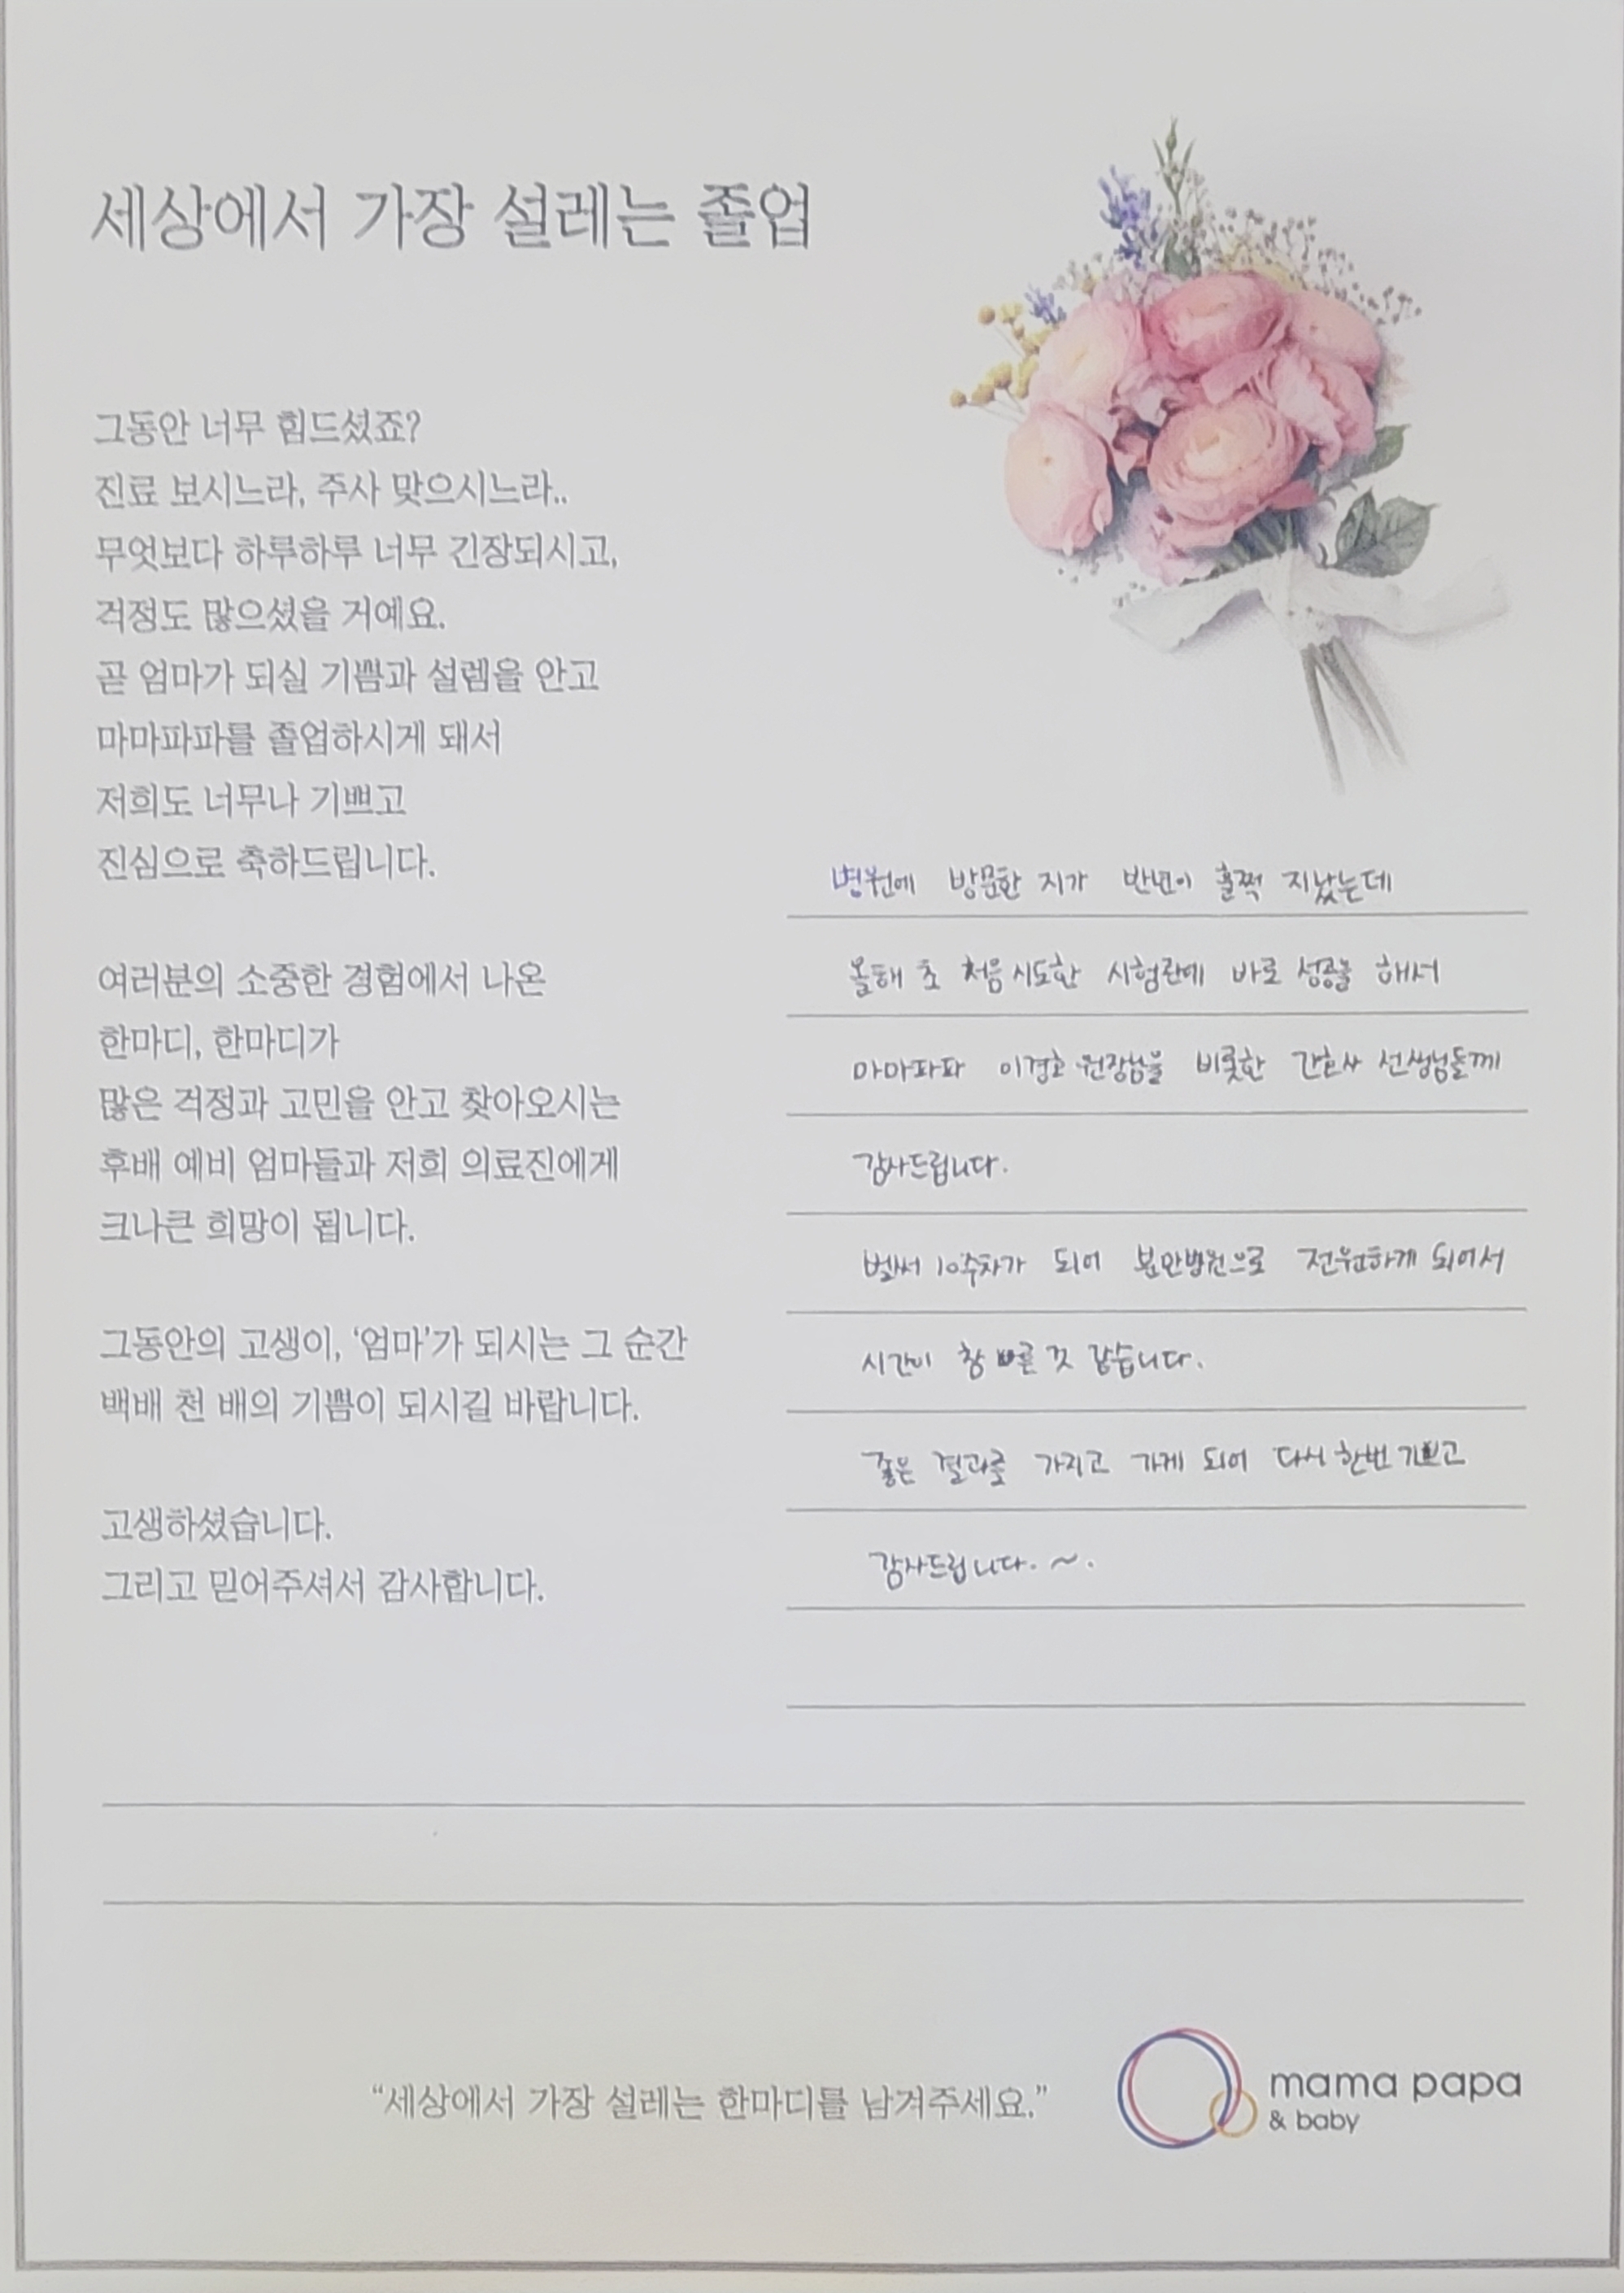 세상에서 가장 설레는 졸업
그동안 너무 힘드셨죠?
진료 보시느라, 주사 맞으시느라..
무엇보다 하루하루 너무 긴장되시고,
걱정도 많으셨을 거예요.
곧 엄마가 되실 기쁨과 설렘을 안고
마마파파를 졸업하시게 돼서
저희도 너무나 기쁘고
진심으로 축하드립니다.
여러분의 소중한 경험에서 나온
한마디, 한마디가
많은 걱정과 고민을 안고 찾아오시는
후배 예비 엄마들과 저희 의료진에게
크나큰 희망이 됩니다.
그동안의 고생이, ‘엄마’가 되시는 그 순간
백배 천 배의 기쁨이 되시길 바랍니다.
고생하셨습니다.
그리고 믿어주셔서 감사합니다.
병원에 방문한 지가 반년이 훌쩍 지났는데
올해 초 처음 시도한 시험관에 바로 성공을 해서
마마파파 이경호 원장님을 비롯한 간호사 선생님들께
감사드립니다.
벌써 10주차가 되어 분만병원으로 전원하게 되어서
시간이 참 빠른 것 같습니다.
좋은 결과를 가지고 가게 되어 다시 한번 기쁘고
감사드립니다. ~.
“세상에서 가장 설레는 한마디를 남겨주세요.”
mama papa
& baby